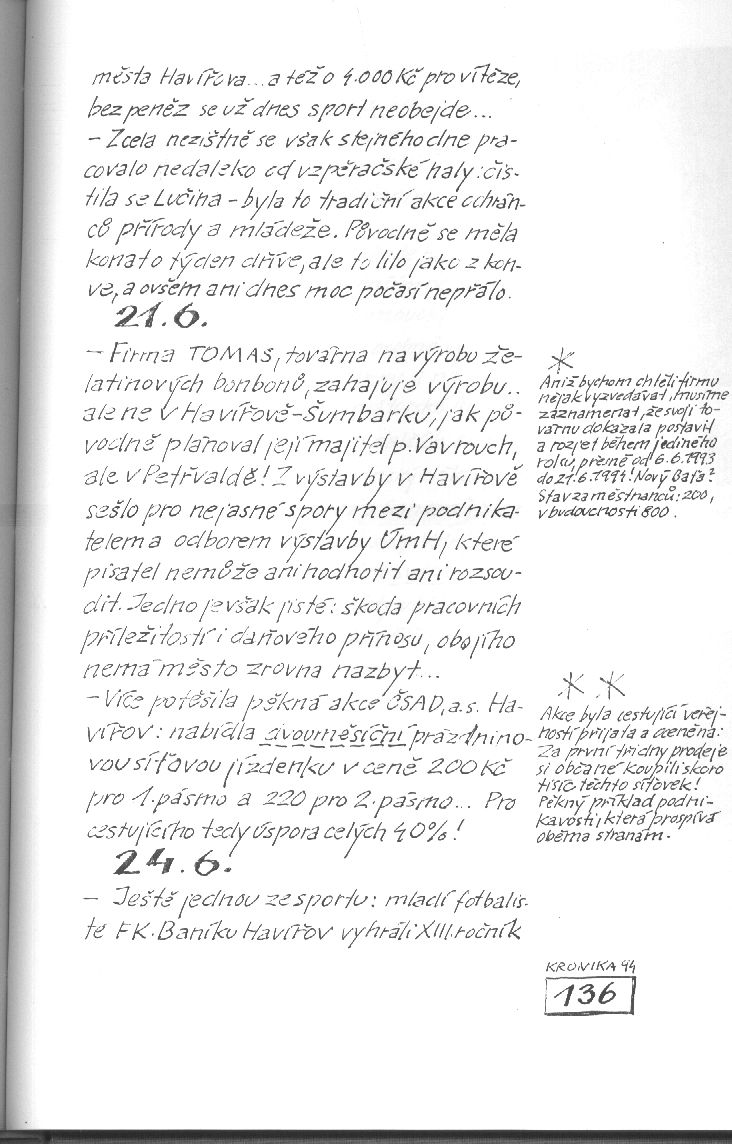 města Havířova...a též o 4.000 Kč pro vítěze,
bez peněz se už dnes sport neobejde...
- Zcela nezištně se však stejného dne pra-
covalo nedaleko od vzpěračské haly: čis-
tila se Lučina - byla to tradiční akce ochrán-
ců přírody a mládeže. Původně se měla
konat o týden dříve, ale to lilo jako z kon-
ve, a ovšem ani dnes moc počasí nepřálo.
21.6.
- Firma TOMAS, továrna na výrobu že-
latinových bonbonů, zahajuje výrobu..
ale ne v Havířově-Šumbarku, jak pů-
vodně plánoval její majitel p. Vavrouch,
ale v Petřvaldě! Z výstavby v Havířově
sešlo pro nejasné spory mezi podnika-
telem a odborem výstavby ÚmH, které
pisatel nemůže ani hodnotit ani rozsou-
dit. Jedno je však jisté: škoda pracovních
příležitostí i daňového přínosu, obojího
nemá město zrovna nazbyt...
- Více potěšila pěkná akce ČSAD, a.s. Ha-
vířov: nabídla dvouměsíční prázdnino-
vou síťovou jízdenku v ceně 200 Kč
pro 1. pásmo a 220 pro 2. pásmo... Pro
cestujícího tedy úspora celých 40%!
24.6.
- Ještě jednou ze sportu: mladí fotbalis-
té FK. Baníku Havířov vyhráli XIII. ročník
*
Aniž bychom chtěli firmu
nějak vyzvedávat, musíme
zaznamenat, že svoji to-
várnu dokázala postavit
a rozjet během jediného
roku, přemě od 6.6.1993
do 21.6.1994! Nový Baťa?
Stav zaměstnanců: 200,
v budoucnosti 800.
* *
Akce byla cestující veřej-
ností přijata a oceněna:
Za první tři dny prodeje
si občané koupili skoro
tisíc těchto síťovek!
Pěkný příklad podni-
kavosti, která prospívá
oběma stranám.
KRONIKA 94
136